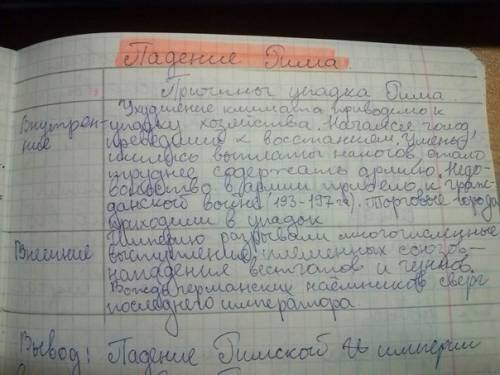 Падение Рима
Причины упадка Рима
Ухудшение климата приводило к
Внутрен-
ние
упадку хозяйства. Начался голод,
приведший к восстаниям. Умень-
шились выплаты налогов, стало
труднее содержать армию. Недо-
вольство в армии привело к граж-
данской войне (193-197 гг). Торговые города
приходили в упадок
Внешние
Империю разрывали многочисленные
выступления племенных союзов-
нападения вестготов и гуннов.
Вождь германских наёмников сверг
последнего императора
Вывод: Падение Римской империи